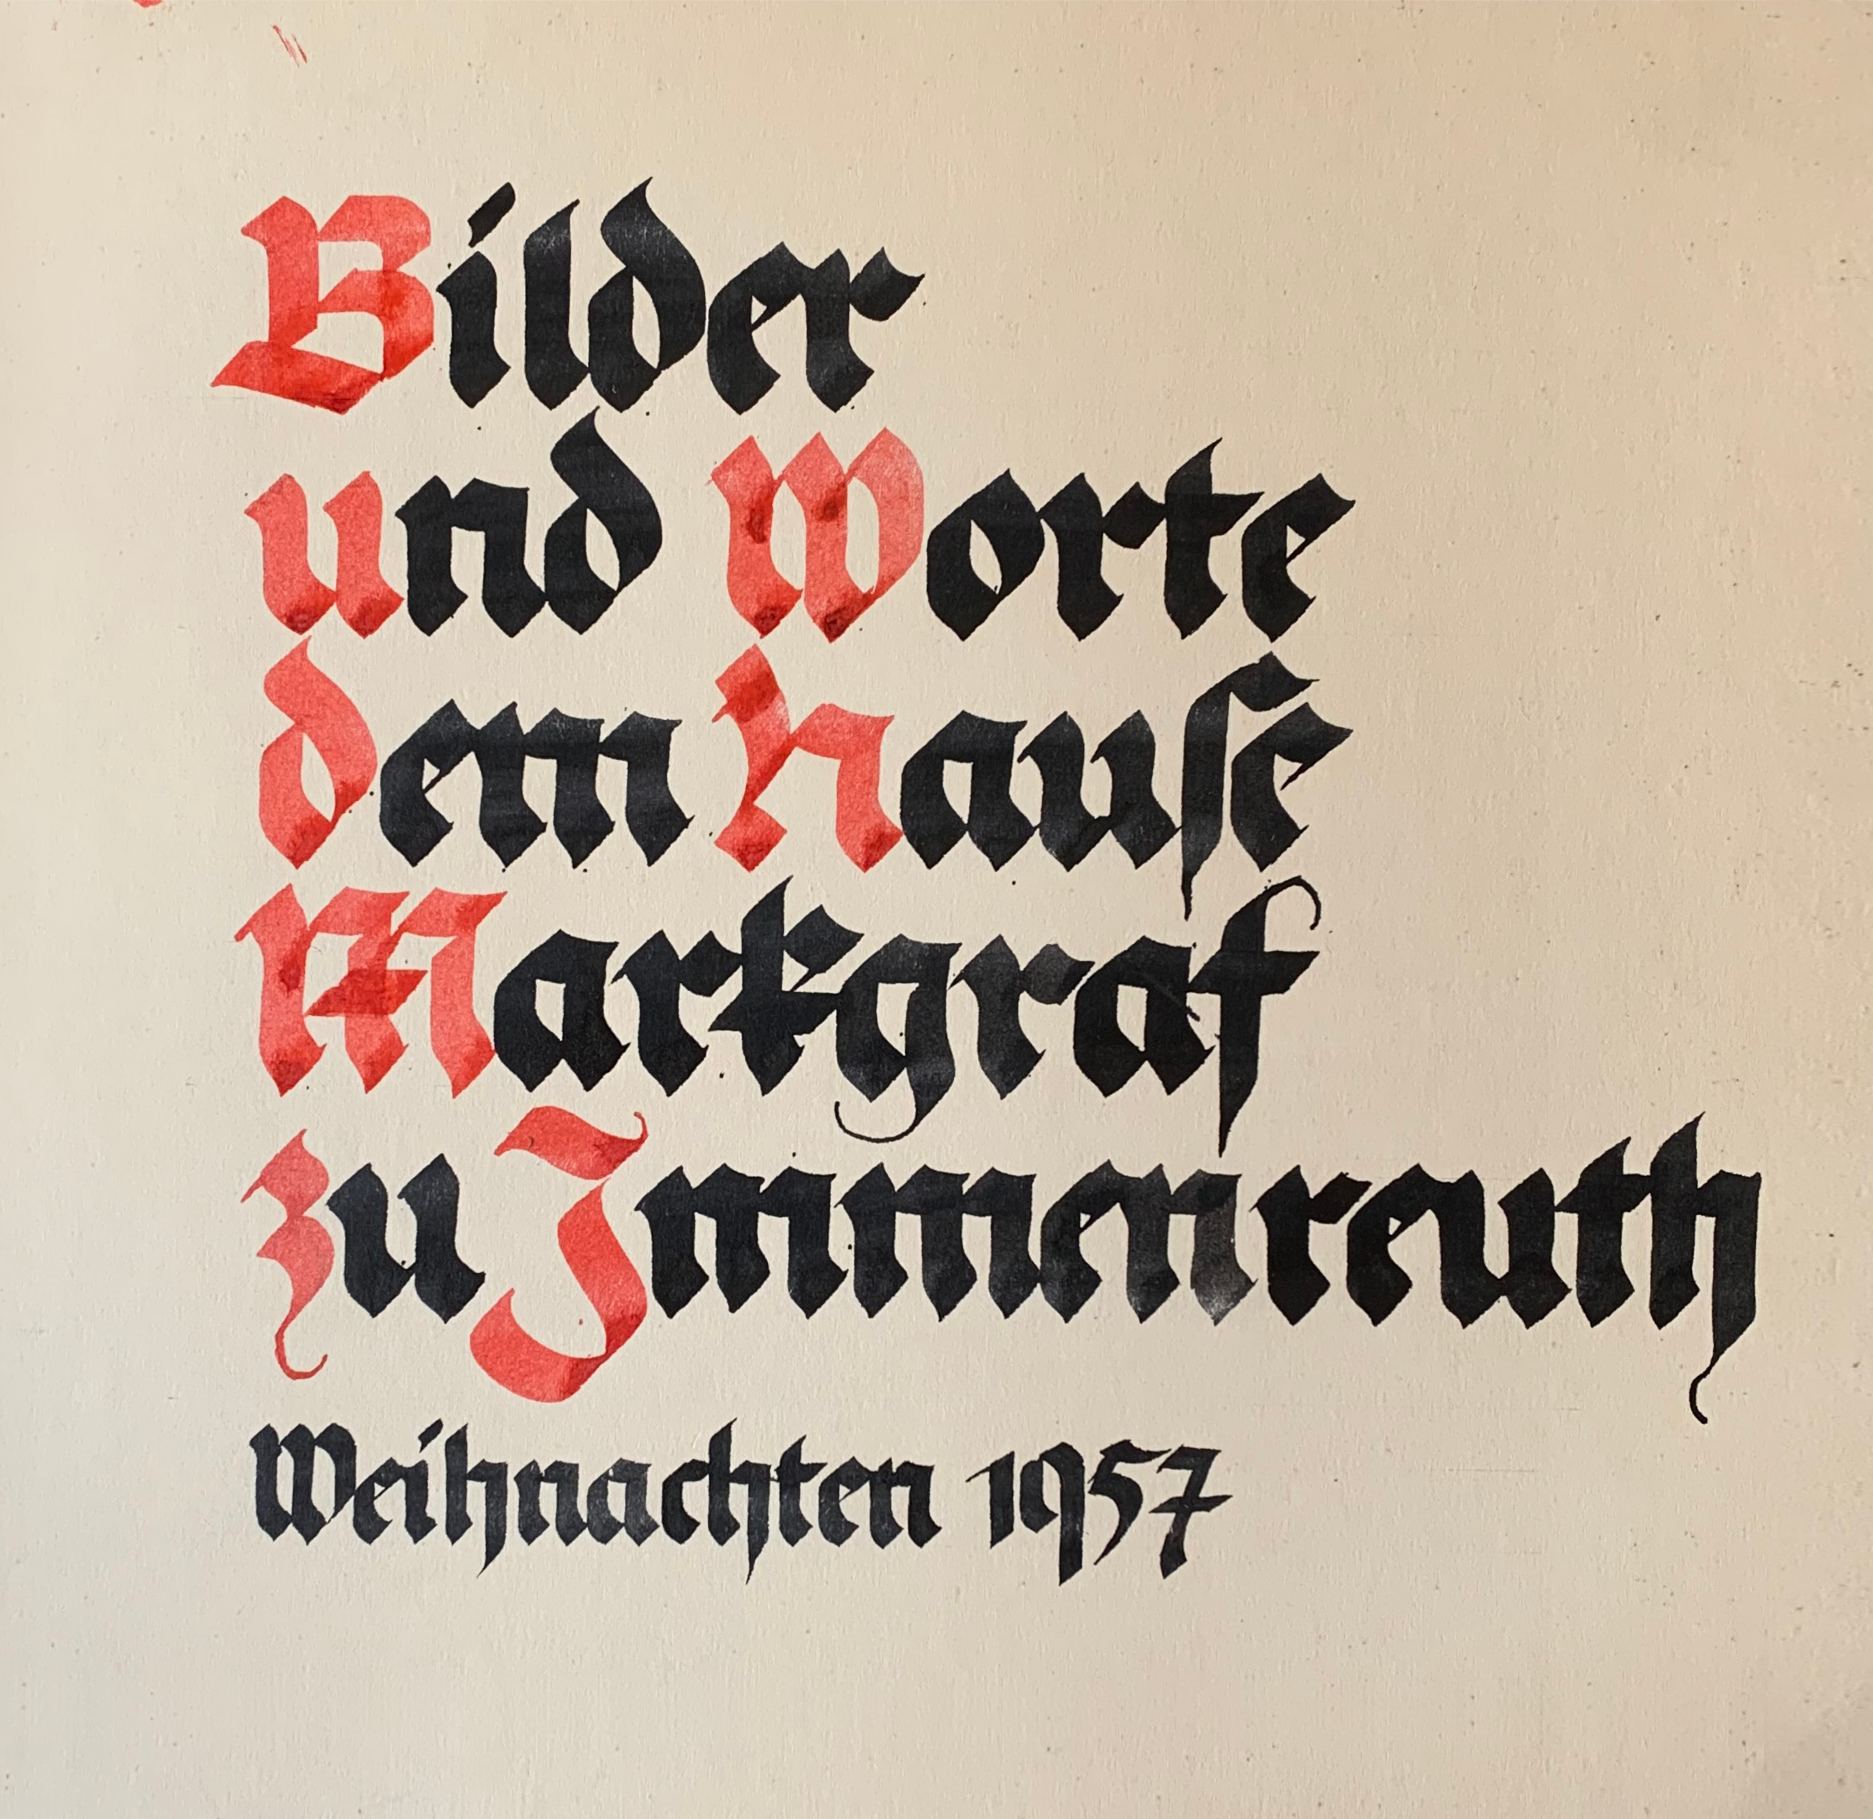 Bilder
und Worte
dem Hauſe
Markgraf
zu Immenreuth
Weihnachten 1957